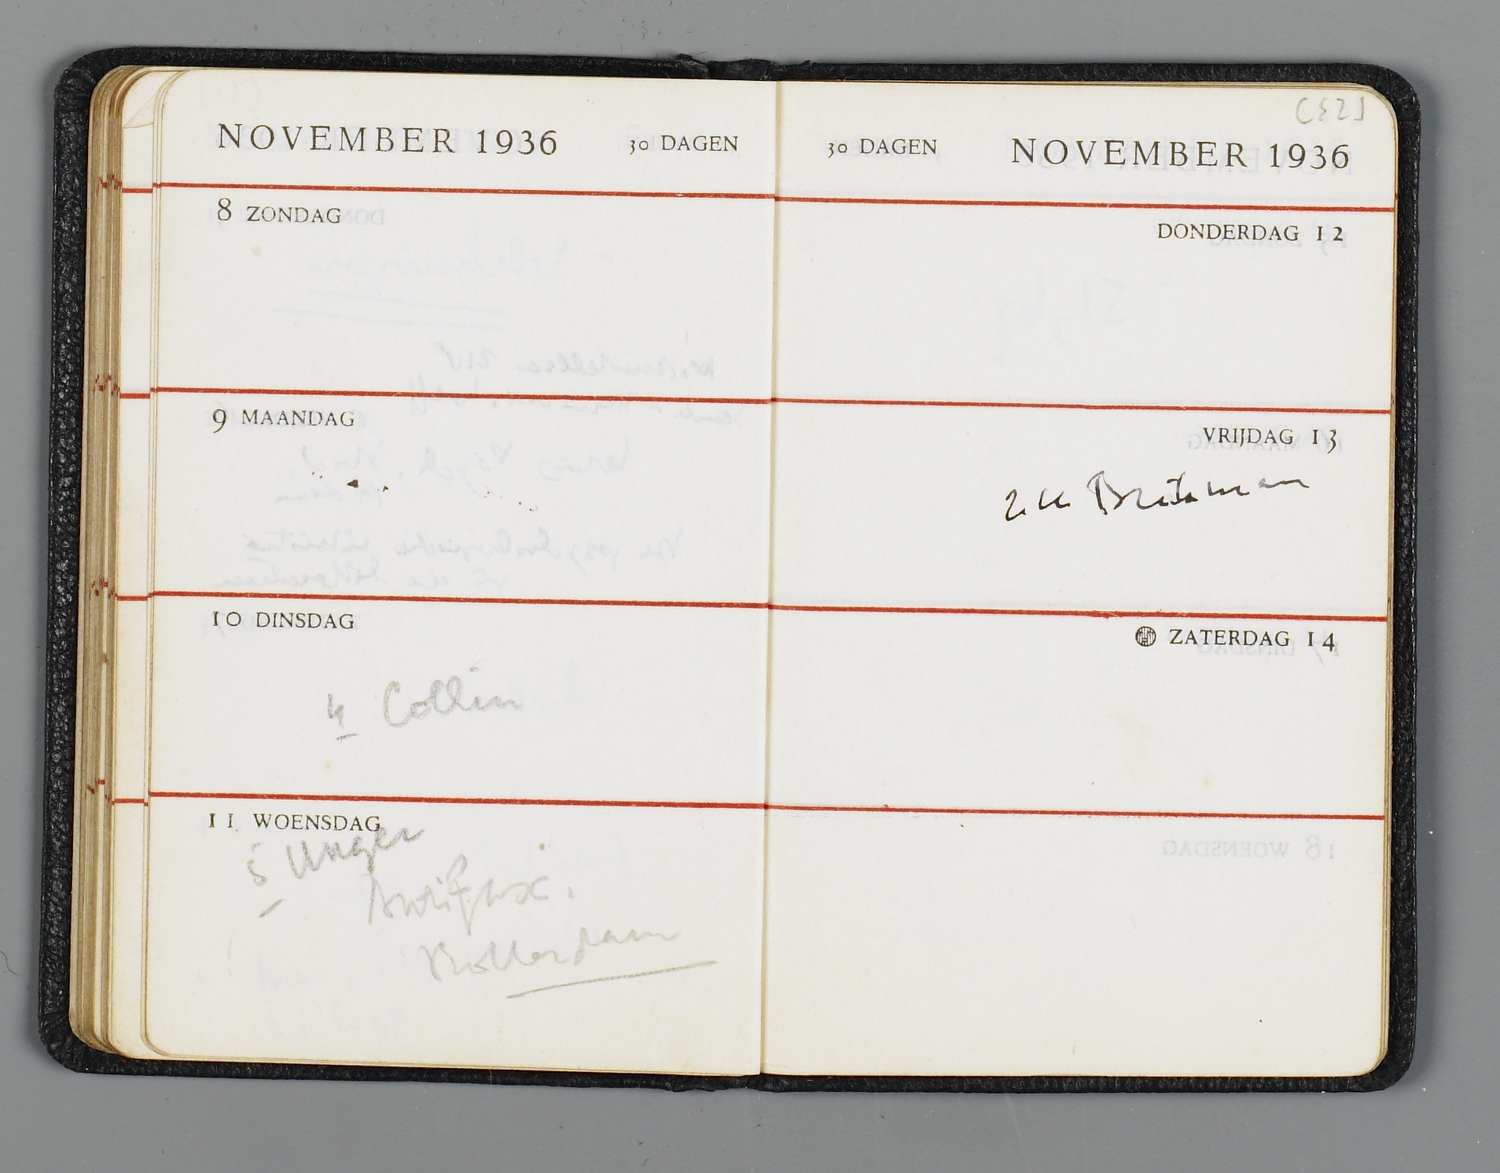 NOVEMBER 1936 30 DAGEN
8 ZONDAG
9 MAANDAG
10 DINSDAG
4 Collin
11 WOENSDAG
5 Unger
Rotterdam
[52]
30 DAGEN NOVEMBER 1936
DONDERDAG 12
VRIJDAG 13
ZATERDAG 14